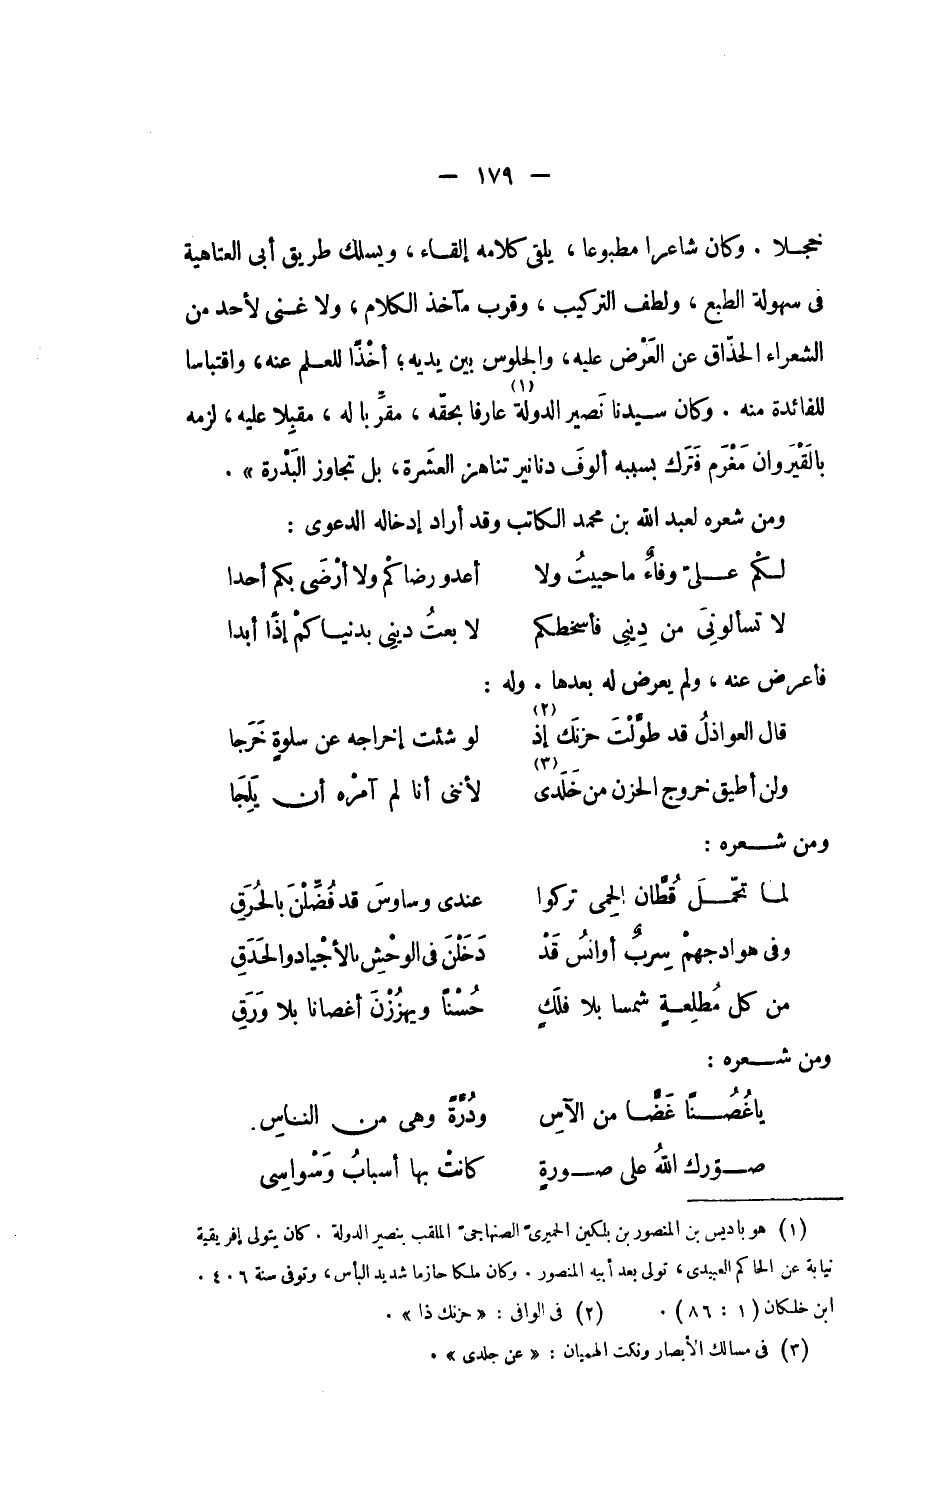 — ١٧٩ —
خجلا . وكان شاعرا مطبوعا ، يلقى كلامه إلقاء ، ويسلك طريق أبى العتاهية
فى سهولة الطبع ، ولطف التركيب ، وقرب مآخذ الكلام ، ولا غنى لأحد من
الشعراء الحذّاق عن العَرْض عليه ، والجلوس بين يديه ؛ أخْذًا للعلم عنه ، واقتباسا
للفائدة منه . وكان سيدنا نَصير الدولة (١) عارفا بحقّه ، مقرًّا له ، مقبِلا عليه ، لزمه
بالقَيْرَوان مَغْرَم فَتَرك بسببه ألوفَ دنانير تناهز العشَرة ، بل تجاوز البَدْرة » .
ومن شعره لعبد الله بن محمد الكاتب وقد أراد إدخاله الدعوى :
لكمْ علىّ وفاءٌ ما حييتُ ولا أعدو رضاكمْ ولا أرْضَى بكم أحدا
لا تسألونِىَ من دِينِى فأسخطكم لا بعتُ دينِى بدنياكمْ إذًا أبدا
فأعرض عنه ، ولم يعرض له بعدها . وله :
قال العواذلُ قد طوّلْتَ حزنَك إذ (٢) لو شئت إخراجه عن سلوةٍ خَرَجا
ولن أطيق خروج الحزن من خَلَدى (٣) لأننى أنا لم آمرْه أن يَلِجَا
ومن شعره :
لما تحمّلَ قُطَّان الحِمى تركوا عندى وساوسَ قد فُضِّلْنَ بالحُرَقِ
وفى هوادجهمْ سِربٌ أوانسُ قَدْ دَخَلْنَ فى الوحْشِ بالأجْياد والحَدَقِ
من كل مُطلِعةٍ شمسا بلا فلَكٍ حُسْنًا ويهزُزْنَ أغصانا بلا وَرَقِ
ومن شعره :
ياغُصُنًا غَضًّا من الآسِ ودُرَّةً وهى من الناسِ .
صوّرك اللهُ على صورةٍ كانتْ بها أسبابُ وَسْواسِى
(١) هو باديس بن المنصور بن بلكين الحميرىّ الصنهاجىّ الملقب بنصير الدولة . كان يتولى إفريقية
نيابة عن الحاكم العبيدى ، تولى بعد أبيه المنصور . وكان ملكا حازما شديد البأس ، وتوفى سنة ٤٠٦ .
ابن خلكان ( ١ : ٨٦ ) . (٢) فى الوافى : « حزنك ذا » .
(٣) فى مسالك الأبصار ونكت الهميان : « عن جلدى » .